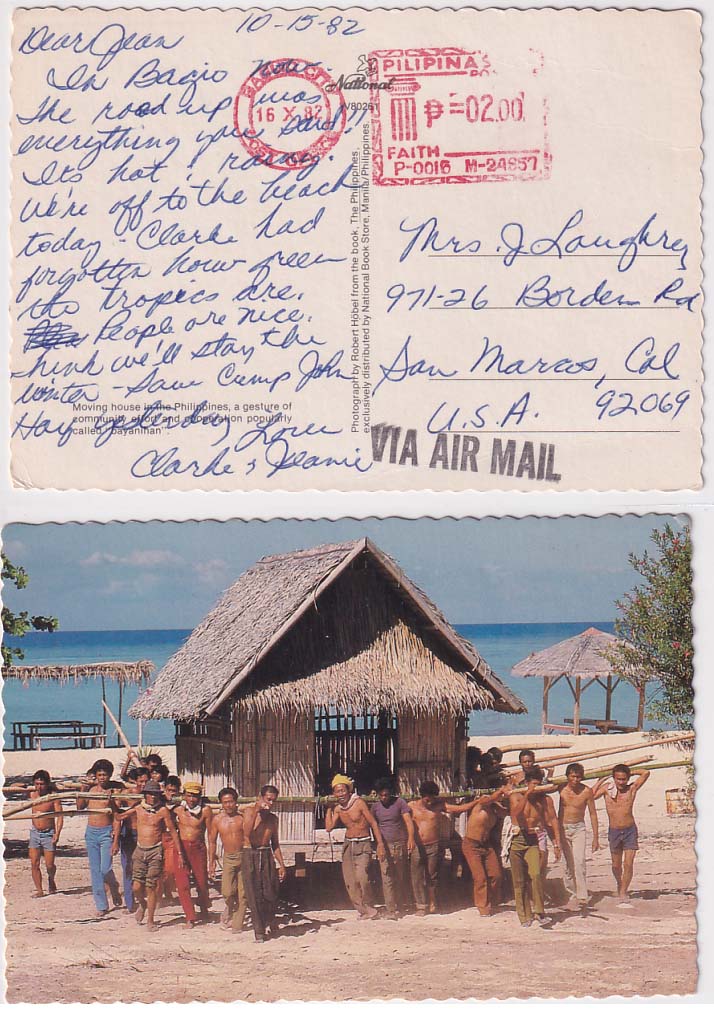 10-15-82
Dear Jean
In Bagio now.
The road up was
everything you said!!
Its hot & rainy.
We're off to the beach
today - Clarke had
forgotten how green
the tropics are.
People are nice.
think we'll stay the
winter - Saw Camp John
Hay yesterday Love
Clarke & Jeanie
Moving house in the Philippines, a gesture of
community effort and cooperation popularly
called "bayanihan".
BAGUIO CITY
16 X 82
National
V8026
Photograph by Robert Höbel from the book, The Philippines,
exclusively distributed by National Book Store, Manila/Philippines.
PILIPINAS
₱=02.00
FAITH
P-0016 M-24857
Mrs. J Loughrey
971-26 Borden Rd
San Marcos, Cal
92069
U.S.A.
VIA AIR MAIL